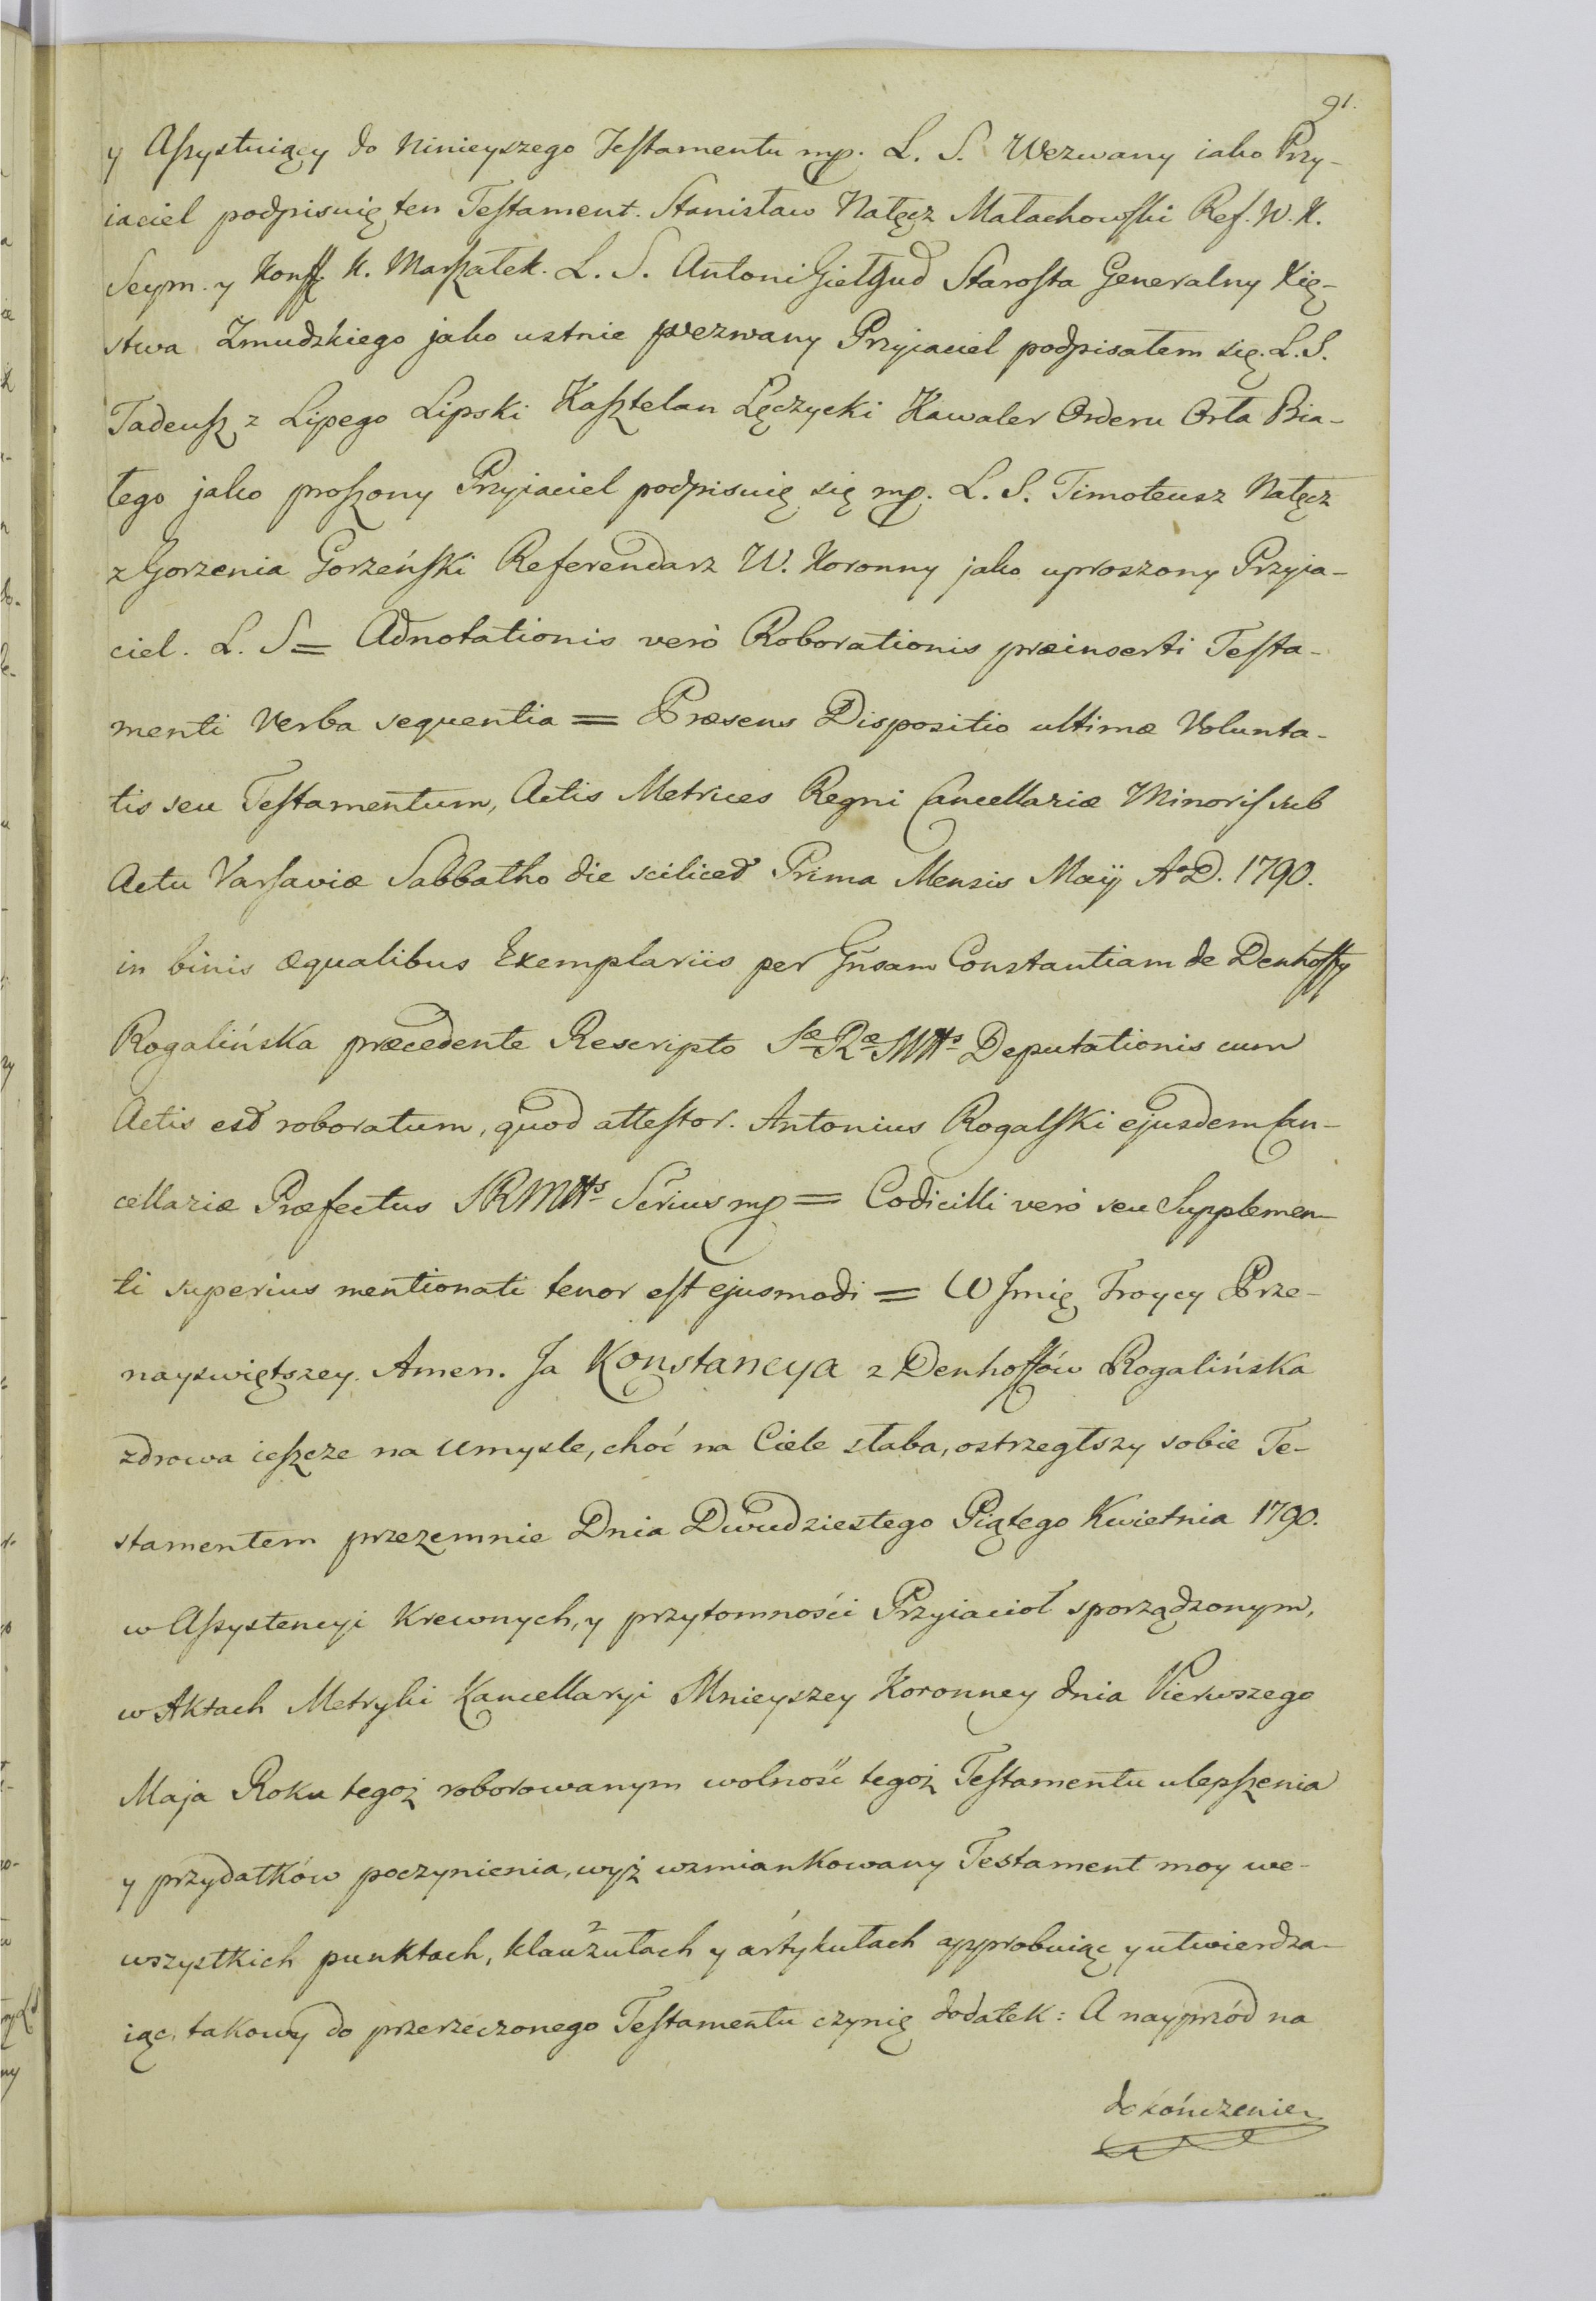 91.
y Assystuiący do Ninieyszego Testamentu mp. L. S. Wezwany iako Przy-
iaciel podpisuię ten Testament. Stanisław Nałęcz Małachowski Ref. W. K.
Seym. y Konff. K. Marszałek. L. S. Antoni Giełgud Starosta Generalny Xię-
stwa Zmudzkiego jako ustnie wezwany Przyiaciel podpisałem się. L. S.
Tadeusz z Lipego Lipski Kasztelan Łęczycki Kawaler Orderu Orła Bia-
łego jako proszony Przyiaciel podpisuię się mp. L. S. Timoteusz Nałęcz
z Gorzenia Gorzeński Referendarz W. Koronny jako uproszony Przyia-
ciel. L. S = Adnotationis verò Roborationis præinserti Testa-
menti Verba sequentia = Præsens Dispositio ultimæ Volunta-
tis seu Testamentum, Actis Metrices Regni Cancellariæ Minoris sub
Actu Varsaviæ Sabbatho die scilicet Prima Mensis Maij Ao D. 1790.
in binis æqualibus Exemplariis per Gnsam Constantiam de Denhoffy
Rogalińska præcedente Rescripto Sæ Ræ Mttis Deputationis cum
Actis est roboratum, quod attestor. Antonius Rogalski ejusdem Can-
cellariæ Præfectus SRMttis Scrius mp = Codicilli verò seu Supplemen-
ti superius mentionati tenor est ejusmodi = W Jmię Troycy Prze-
nayswiętszey. Amen. Ja Konstancya z Denhoffów Rogalińska
zdrowa ieszcze na Umyśle, choć na Ciele słaba, ostrzegłszy sobie Te-
stamentem przezemnie Dnia Dwudziestego Piątego Kwietnia 1790.
w Assystencyi Krewnych, y przytomności Przyiacioł sporządzonym,
w Aktach Metryki Kancellaryi Mnieyszey Koronney dnia Pierwszego
Maja Roku tegoż roborowanym wolność tegoż Testamentu ulepszenia
y przydatków poczynienia, wyż wzmiankowany Testament moy we-
wszystkich punktach, klauzułach y artykułach approbuiąc y utwierdza-
iąc, takowy do przerzeczonego Testamentu czynię dodatek: A nayprzód na
dokończenie